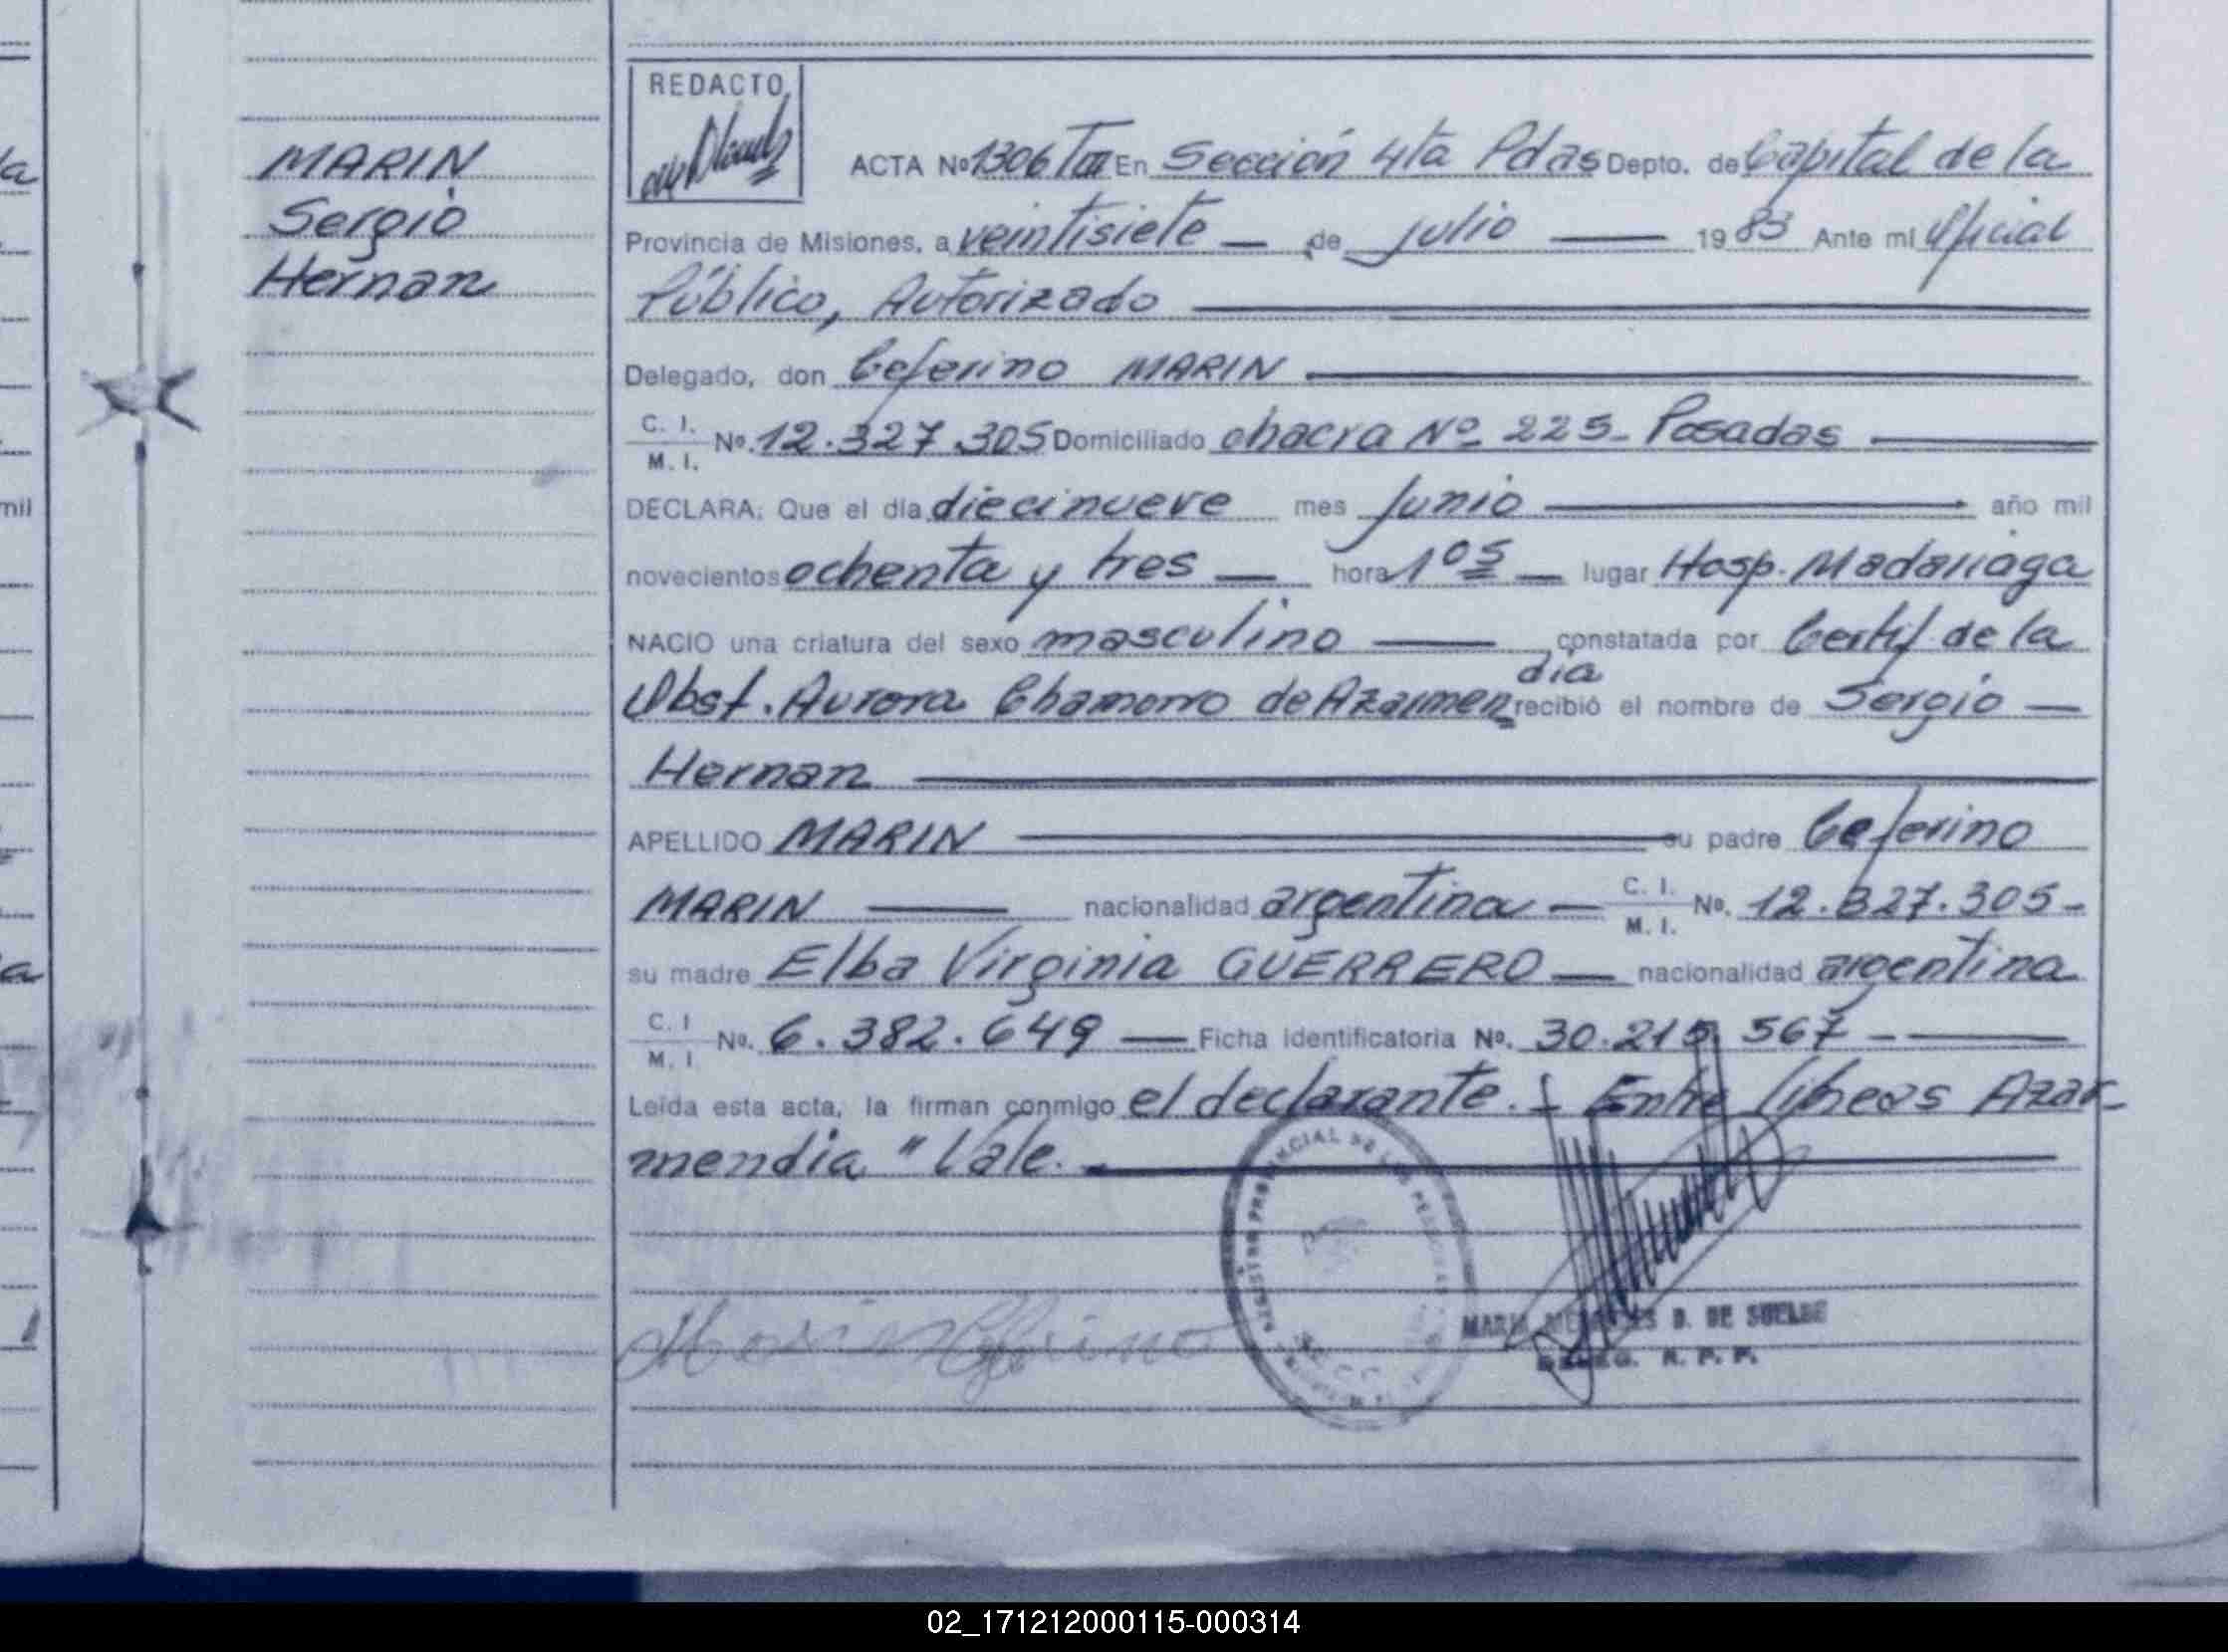 MARIN
Sergio
Hernan
REDACTO
ACTA Nº 1306 TIII En Sección 4ta Pdas Depto. de Capital de la
Provincia de Misiones, a veintisiete — de julio — 1983 Ante mi Oficial
Público, Autorizado
Delegado, don Ceferino MARIN
C. I.
M. I.
Nº. 12.327.305 Domiciliado chacra Nº 225- Posadas
DECLARA: Que el día diecinueve mes Junio — año mil
novecientos ochenta y tres — hora 1 05 — lugar Hosp. Madariaga
NACIO una criatura del sexo masculino — constatada por Certif de la
dia
Obst. Aurora Chamorro de Azarmen recibió el nombre de Sergio —
Hernan
APELLIDO MARIN — su padre Ceferino
MARIN — nacionalidad argentina — C. I. M. I. Nº. 12.327.305-
su madre Elba Virginia GUERRERO — nacionalidad argentina
C. I M. I Nº. 6.382.649 — Ficha identificatoria Nº. 30.215.567 - —
Leída esta acta, la firman conmigo el declarante. - Entre líneas Azar-
mendia " Vale.
REGISTRO PROVINCIAL DE LAS PERSONAS
Marin Ceferino
MARIA MERCEDES D. DE SUELDO
DELEG. R. P. P.
a
mil
a
02_171212000115-000314